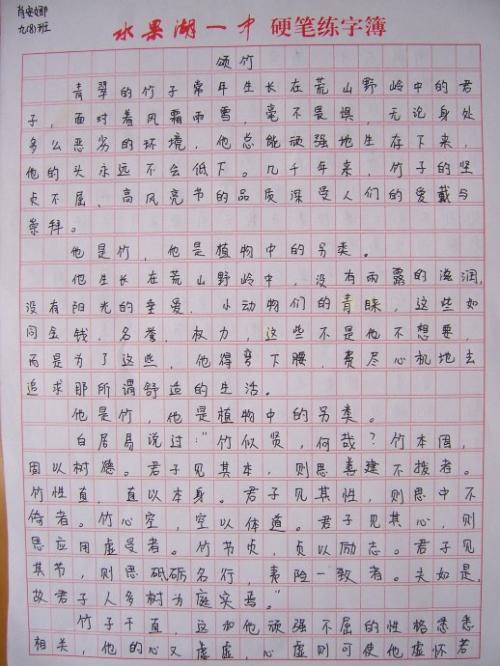 肖安娜
九(8)班
水果湖一中 硬笔练字簿
颂竹
青翠的竹子常年生长在荒山野岭中的君
子，面对着风霜雨雪，毫不畏惧，无论身处
多么恶劣的环境，他总能顽强地生存下来，
他的头永远不会低下。几千年来，竹子的坚
贞不屈、高风亮节的品质深受人们的爱戴与
崇拜。
他是竹，他是植物中的另类。
他生长在荒山野岭中，没有雨露的滋润，
没有阳光的垂爱，小动物们的青睐，这些如
同金钱，名誉，权力，这些不是他不想要，
而是为了这些，他得弯下腰，费尽心机地去
追求那所谓舒适的生活。
他是竹，他是植物中的另类。
白居易说过："竹似贤，何哉？竹本固，
固以树德。君子见其本，则思善建不拔者。
竹性直，直以本身。君子见其性，则思中不
倚者。竹心空，空以体道。君子见其心，则
思应用虚受者。竹节贞，贞以励志。君子见
其节，则思砥砺名行，夷险一致者。夫如是，
故君子人多树为庭实焉。"
竹子干直，这和他顽强不屈的性格悉悉
相关，他的心又虚虚，心虚则可使他虚怀若